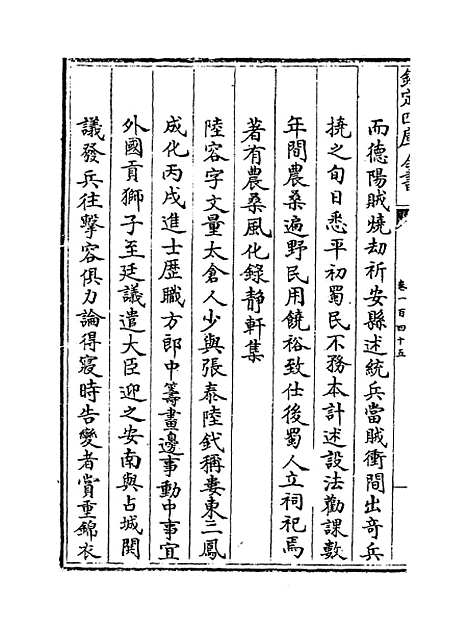 欽定四庫全書
卷一百四十五
而德陽賊燒刼祈安縣述統兵當賊衝間出竒兵
撓之旬日悉平初蜀民不務本計述設法勸課數
年間農桑遍野民用饒裕致仕後蜀人立祠祀焉
著有農桑風化錄靜軒集
陸容字文量太倉人少與張泰陸釴稱婁東三鳳
成化丙戌進士歷職方郎中籌畫邊事動中事宜
外國貢獅子至廷議遣大臣迎之安南與占城鬨
議發兵往擊容俱力論得寢時告變者賞重錦衣